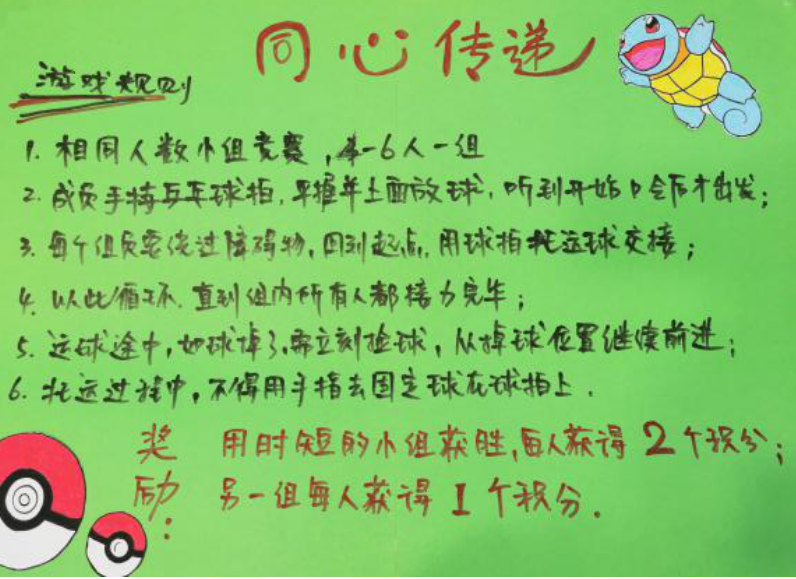 同心传递
游戏规则
1. 相同人数小组竞赛，4-6人一组
2. 成员手持乒乓球拍，平握并上面放球，听到开始口令后才出发；
3. 每个组员要绕过障碍物，回到起点，用球拍托运球交接；
4. 以此循环，直到组内所有人都接力完毕；
5. 运球途中，如球掉了，需立刻捡球，从掉球位置继续前进；
6. 托运过程中，不得用手指去固定球在球拍上.
奖励： 用时短的小组获胜，每人获得2个积分；
另一组每人获得1个积分.